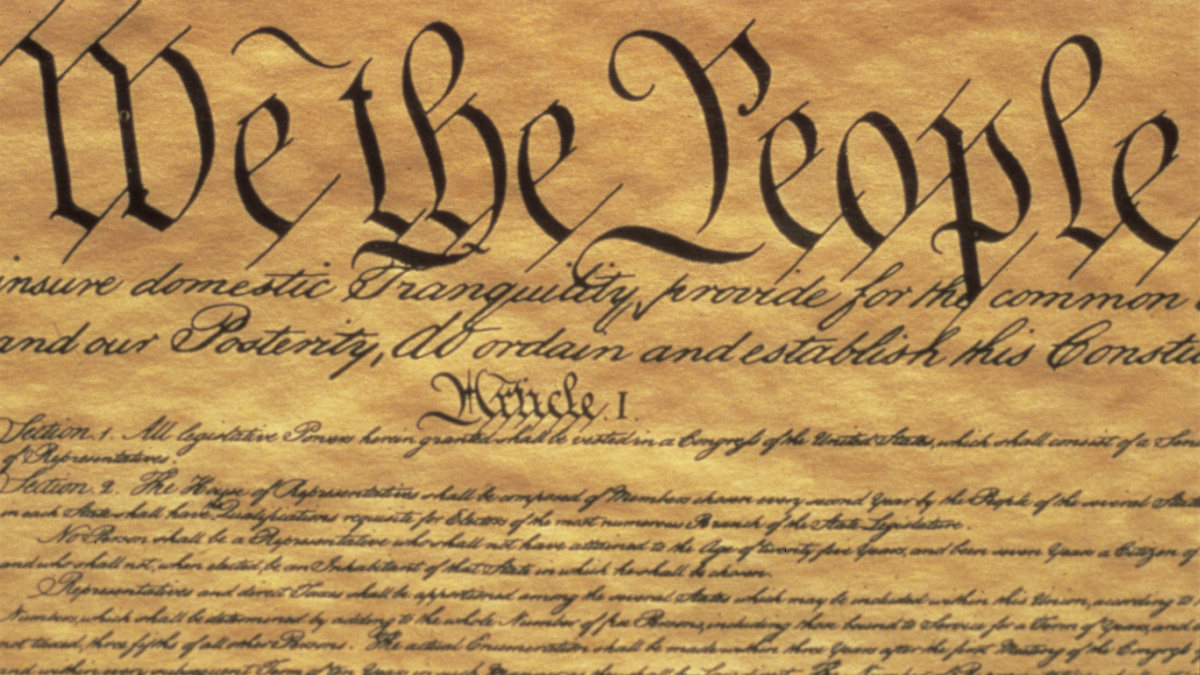 We the People
insure domestic Tranquility, provide for the common
and our Posterity, do ordain and establish this Constitu
Article. I.
Section. 1. All legislative Powers herein granted shall be vested in a Congress of the United States, which shall consist of a Sen
of Representatives.
Section. 2. The House of Representatives shall be composed of Members chosen every second Year by the People of the several Stat
in each State shall have the Qualifications requisite for Electors of the most numerous Branch of the State Legislature.
No Person shall be a Representative who shall not have attained to the Age of twenty five Years, and been seven Years a Citizen of
and who shall not, when elected, be an Inhabitant of that State in which he shall be chosen.
Representatives and direct Taxes shall be apportioned among the several States which may be included within this Union, according to
Numbers, which shall be determined by adding to the whole Number of free Persons, including those bound to Service for a Term of Years, and
not taxed, three fifths of all other Persons. The actual Enumeration shall be made within three Years after the first Meeting of the Congress
and within every subsequent Term of ten Years